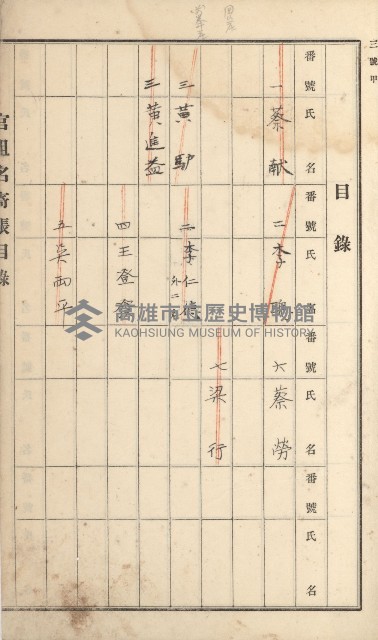 三號甲
目錄
番號 氏名
番號 氏名
番號 氏名
番號 氏名
一 蔡献
二 李
六 蔡勞
七 梁行
三 黃
二 李仁德
外二名
三 黃進益
四 王登
五 吳両平
官租名寄帳目錄
高雄市立歷史博物館
KAOHSIUNG MUSEUM OF HISTORY